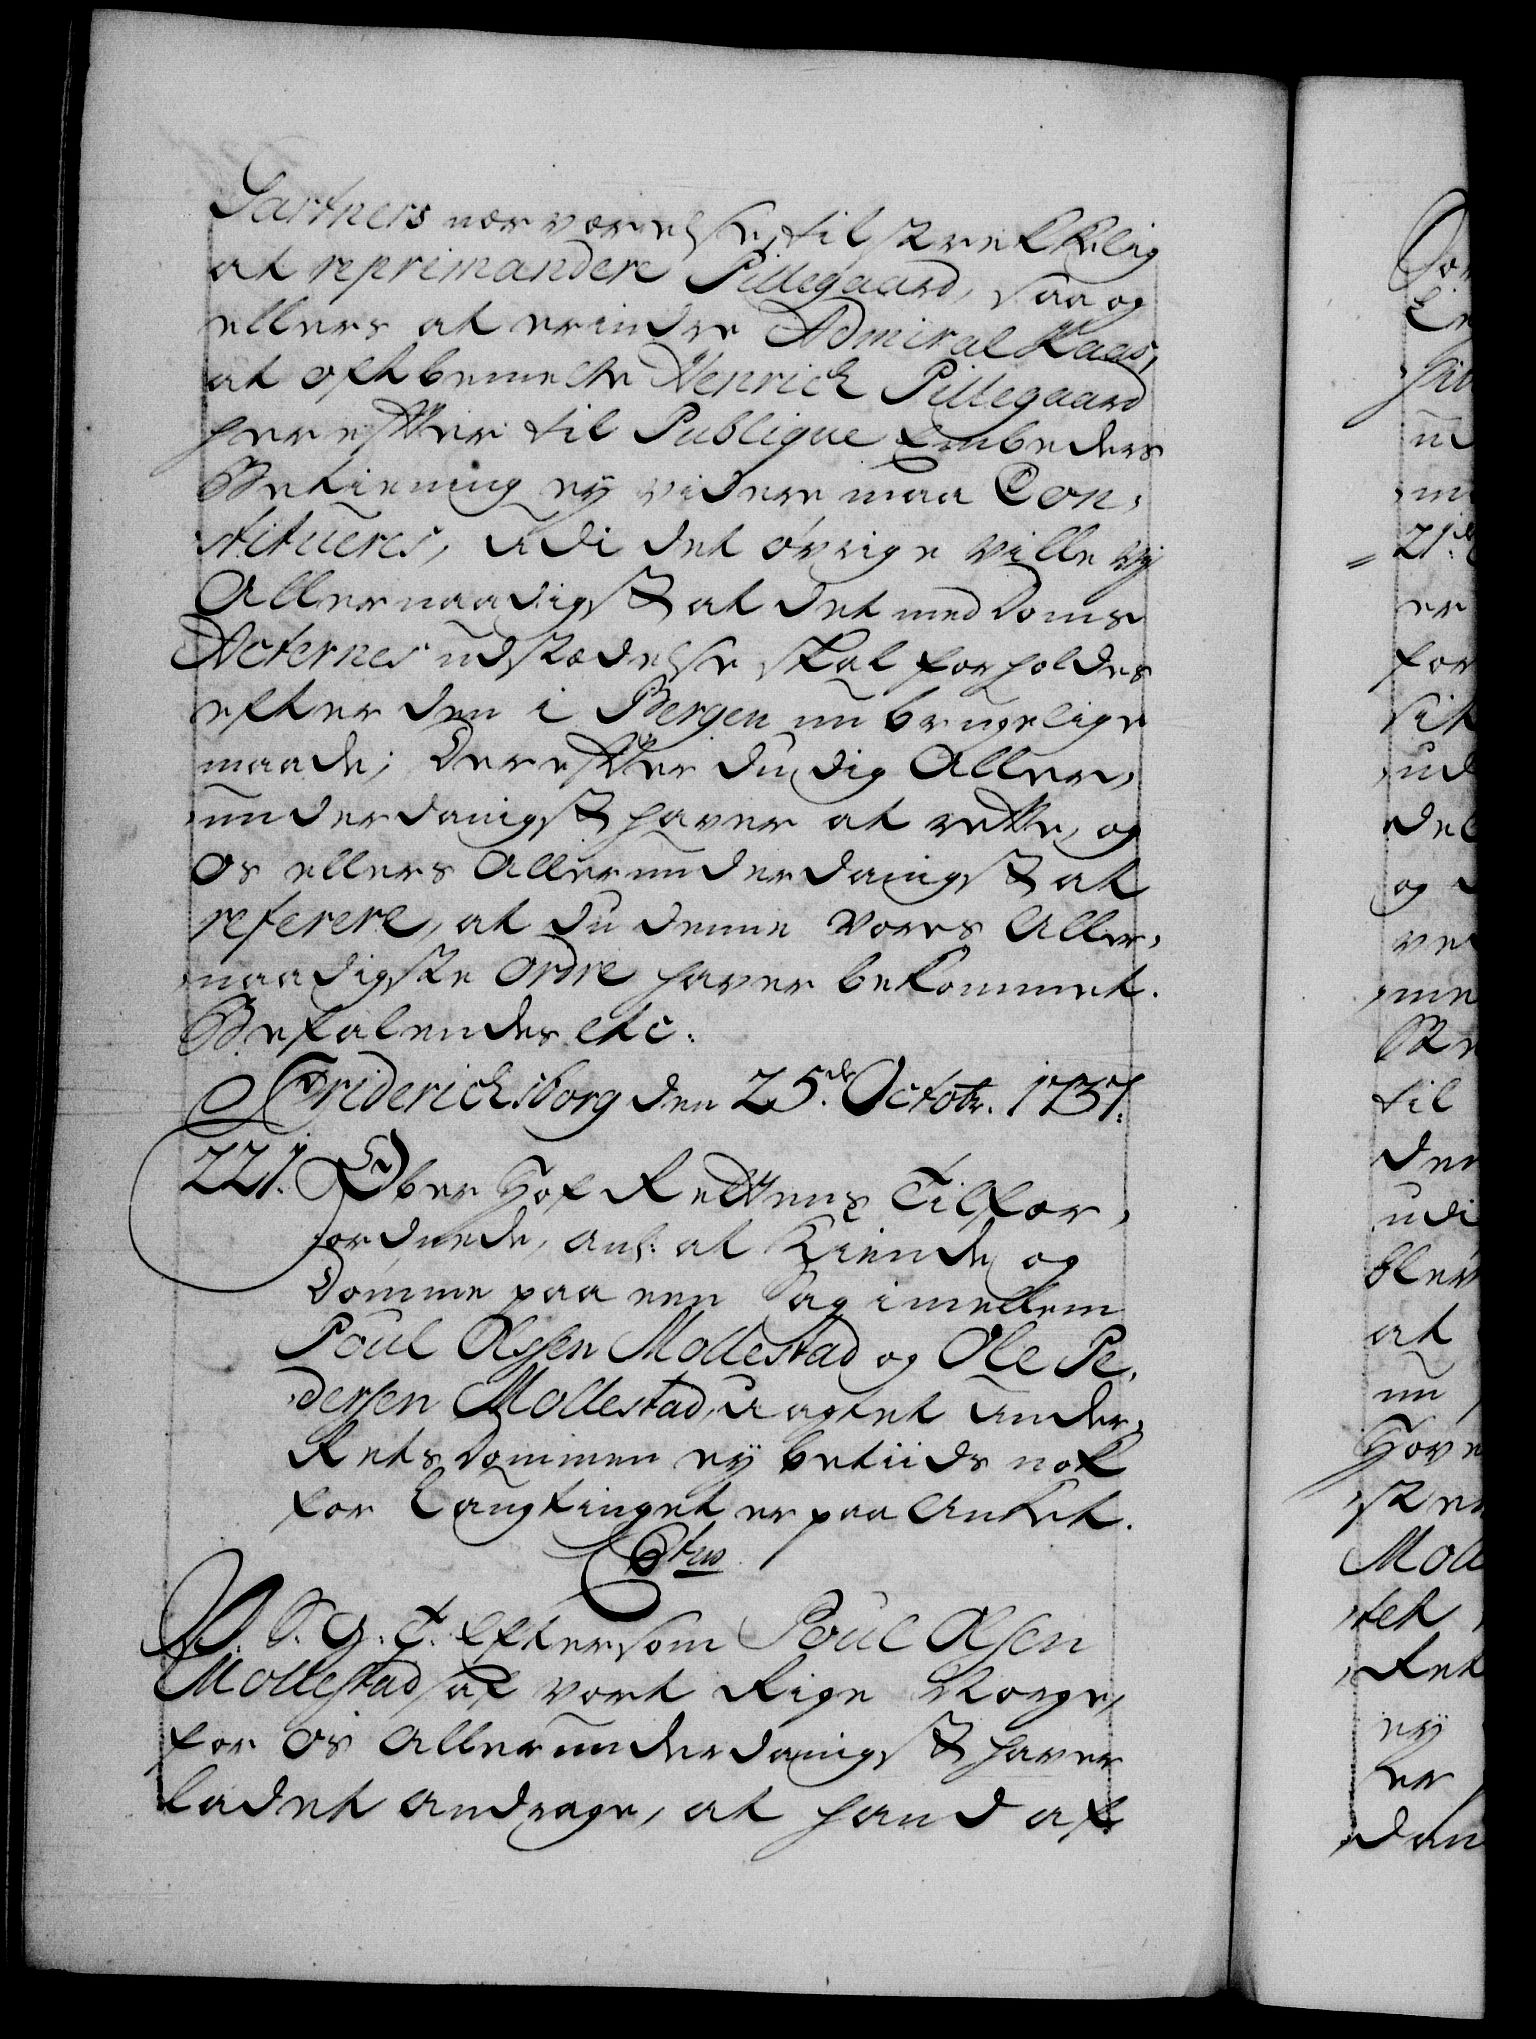 Gartners nærværelse, tilstrekkelig
at reprimandere Pillegaard, saa og
ellers at erindre Admiral Kaas,
at oftbemelte Henrich Pillegaard
herefter til Publique Embeders
Betiening eÿ videre maa Con-
stitueres, udi det øvrige ville Vj
Allernaadigst at det med Doms
Acternes udstædelse skal forholdes
efter den i Bergen nu brugelige
maade; Derefter du dig Aller-
underdanigst haver at rette, og
Os ellers Allerunderdanigst at
referere, at du denne Vores Aller-
naadigste Ordre haver bekommet.
Befalendes etc.
Friderichsborg den 25de Octobr. 1737.
221. Ober Hof Rettens Tilfor-
ordnede, anl: at Kiende og
Dømme paa een Sag imellem
Poul Olssen Mollestad og Ole Pe-
dersen Mollestad, uagtet Under-
Rets Dommen eÿ betiids nok
for Laugtinget er paa Anket.
C6tus
V. S. G. T. Eftersom Poul Olsen
Mollestad af vort Rige Norge,
for Os Allerunderdanigst haver
ladet andrage, at hand af
Moll